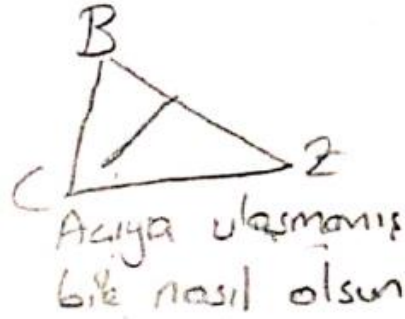 B
C
Z
Açıya ulaşmamış
bile nasıl olsun